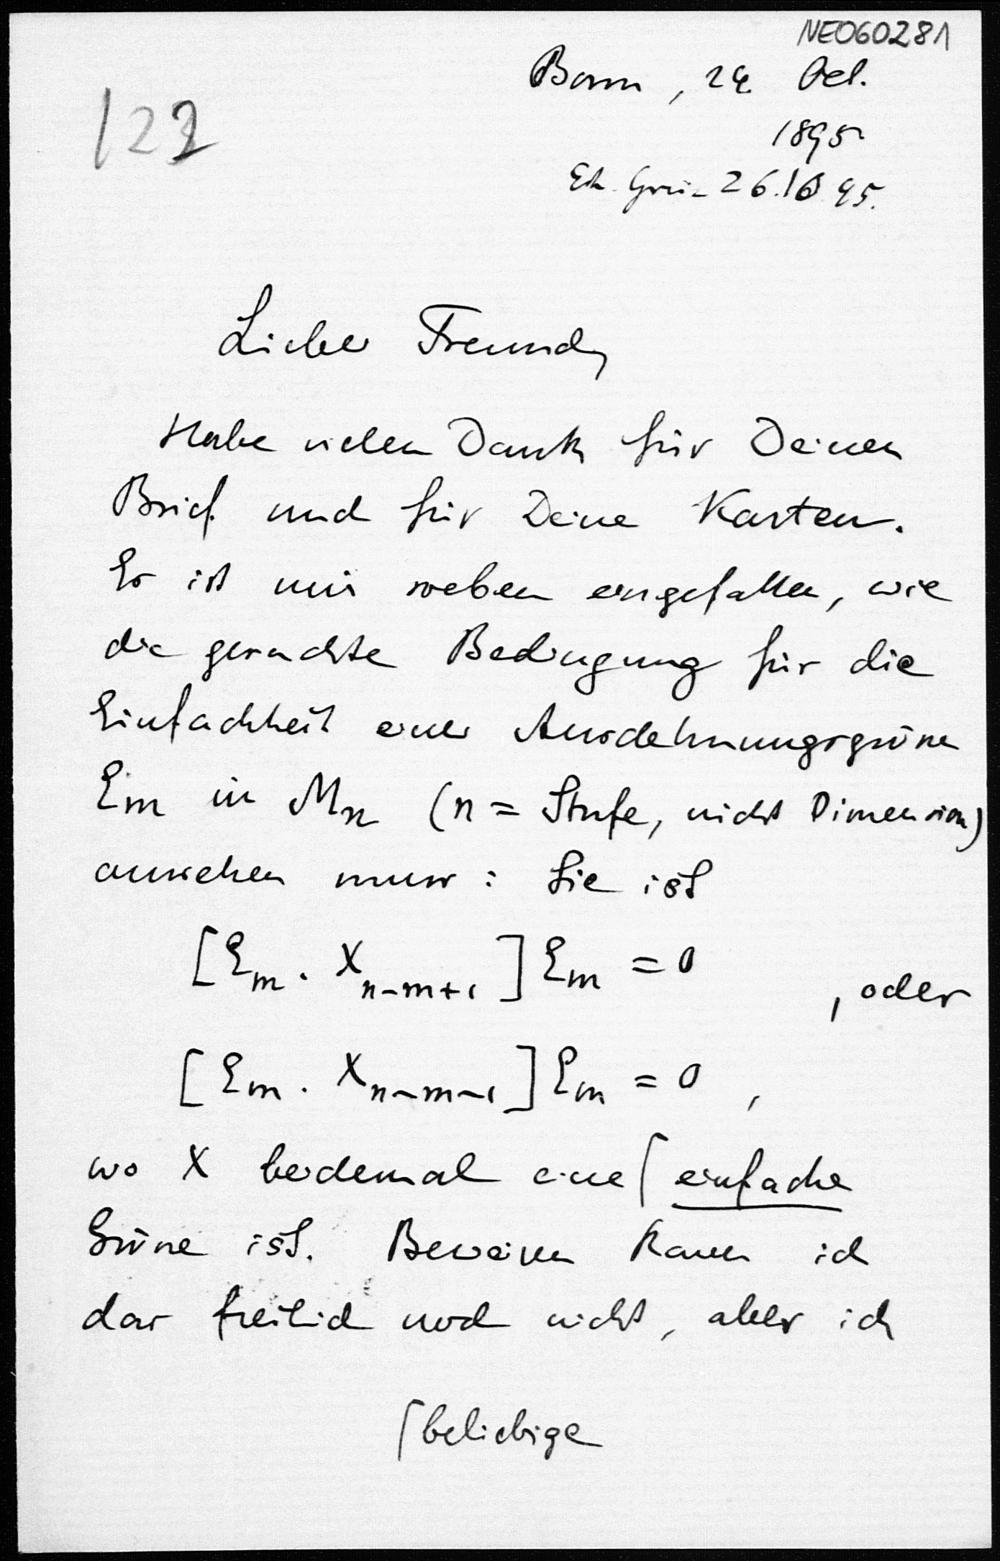 NEO60281
Bonn, 24 Oct.
1895
123
26.10.95.
Lieber Freund,
Habe vielen Dank für Deinen
Brief und für Deine Karten.
Es ist mir soeben eingefallen, wie
die gesuchte Bedingung für die
Einfachheit einer Ausdehnungsgrösse
Em in Mn (n = Stufe, nicht Dimension)
aussehen muss: Sie ist
[Em. Xn-m+1] Em = 0
, oder
[Em. Xn-m-1] Em = 0 ,
wo X beidemal eine ⌈ einfache
Grösse ist. Beweisen kann ich
das freilich noch nicht, aber ich
⌈ beliebige